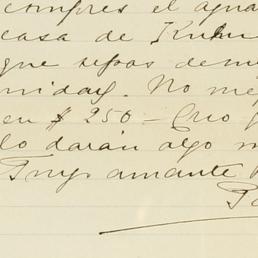 compres el agua
casa de
que sepas de mi
nidad. No me
en $ 250 — Creo
lo darán algo m
Tuyo amante